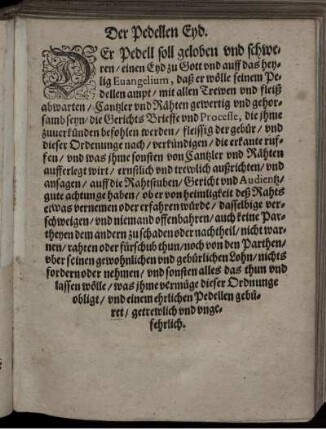 Der Pedellen Eyd.
DEr Pedell soll geloben vnd schwe-
ren / einen Eyd zu Gott vnd auff das hey-
lig Euangelium, daß er wölle seinem Pe-
dellen ampt / mit allen Trewen vnd fleiß
abwarten / Cantzler vnd Rähten gewertig vnd gehor-
samb seyn / die Gerichts Brieffe vnd Processe, die jhme
zuuerkünden befohlen werden / fleissig der gebür / vnd
dieser Ordenunge nach / verkündigen / die erkante ruf-
fen / vnd was jhme sonsten von Cantzler vnd Rähten
aufferlegt wirt / ernstlich vnd trewlich außrichten / vnd
ansagen / auff die Rahtstuben / Gericht vnd Audientz /
gute achtunge haben / ob er von heimligkeit deß Rahts
etwas vernemen oder erfahren würde / dasselbige ver-
schweigen / vnd niemand offenbahren / auch keine Par-
theyen dem andern zu schaden oder nachtheil / nicht war-
nen / rahten oder fürschub thun / noch von den Parthen /
vber seinen gewohnlichen vnd gebürlichen Lohn / nichts
fordern oder nehmen / vnd sonsten alles das thun vnd
lassen wölle / was jhme vermüge dieser Ordnunge
obligt / vnd einem ehrlichen Pedellen gebü-
ret / getrewlich vnd vnge-
fehrlich.